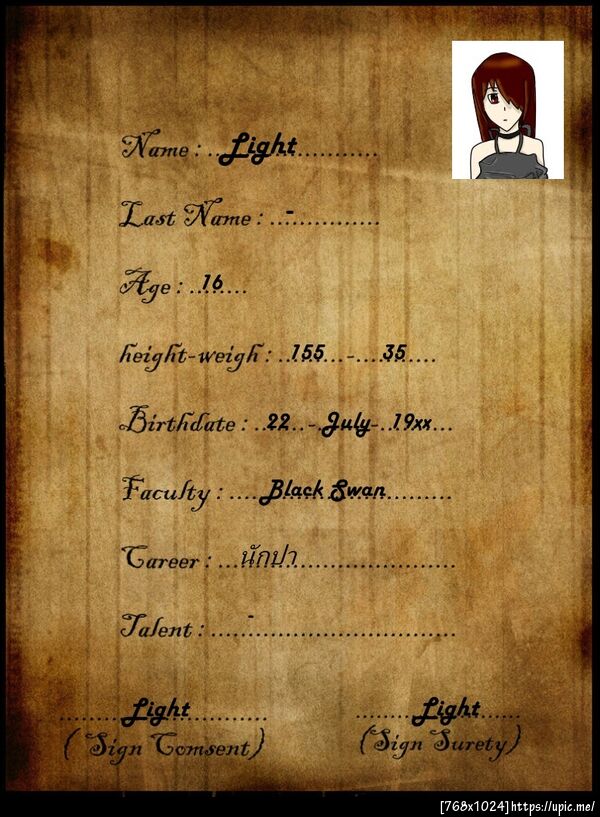 Name : ..Light...........
Last Name : ..-.............
Age : ..16....
height-weigh : ..155...-....35.....
Birthdate : ..22..-.July-..19xx...
Faculty : ....Black Swan.........
Career : ...นักปา......................
Talent : .....-...........................
.........Light............ ........Light......
( Sign Comsent) (Sign Surety)
[768x1024]https://upic.me/